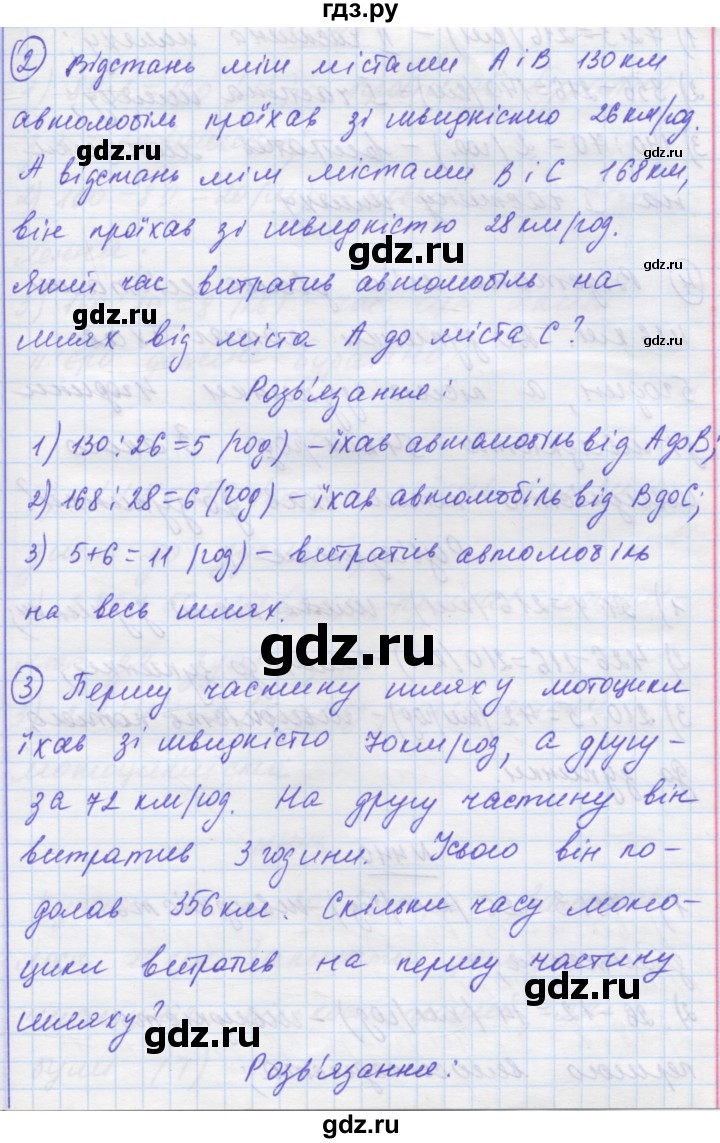 гдз.ру
② Відстань між містами А і В 130 км
автомобіль проїхав зі швидністю 26 км/год.
А відстань між містами В і С 168 км,
він проїхав зі швидністю 28 км/год.
gdz.ru
gdz.ru
Який час витратив автомобіль на
gdz.ru
шлях від міста А до міста С?
gdz.ru
Розв'язання:
1) 130 : 26 = 5 (год) – їхав автомобіль від А до В;
2) 168 : 28 = 6 (год) – їхав автомобіль від В до С;
3) 5 + 6 = 11 (год) – витратив автомобіль
на весь шлях.
gdz.ru
③ Першу частину шляху мотоцикл
їхав зі швидністю 70 км/год, а другу –
за 72 км/год. На другу частину він
витратив 3 години. Усього він по-
долав 356 км. Скільки часу мото-
цикл витратив на першу частину
gdz.ru
шляху?
gdz.ru
Розв'язання:
gdz.ru